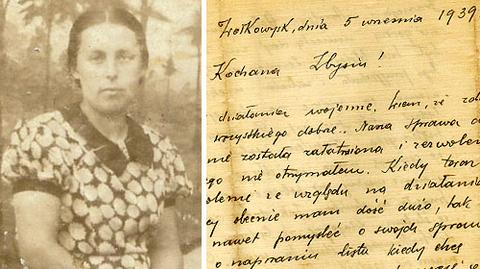 Wołkowysk, dnia 5 września 1939
Kochana Zbysiu!
działania wojenne, wiem, że
wszystkiego dobre.. Nasza sprawa
nie została załatwiona i zezwole
go nie otrzymałem. Kiedy teraz
ze względu na działania
obecnie mam dość dużo, tak
nawet pomyśleć o swoich spraw
o napisaniu listu kiedy chcę